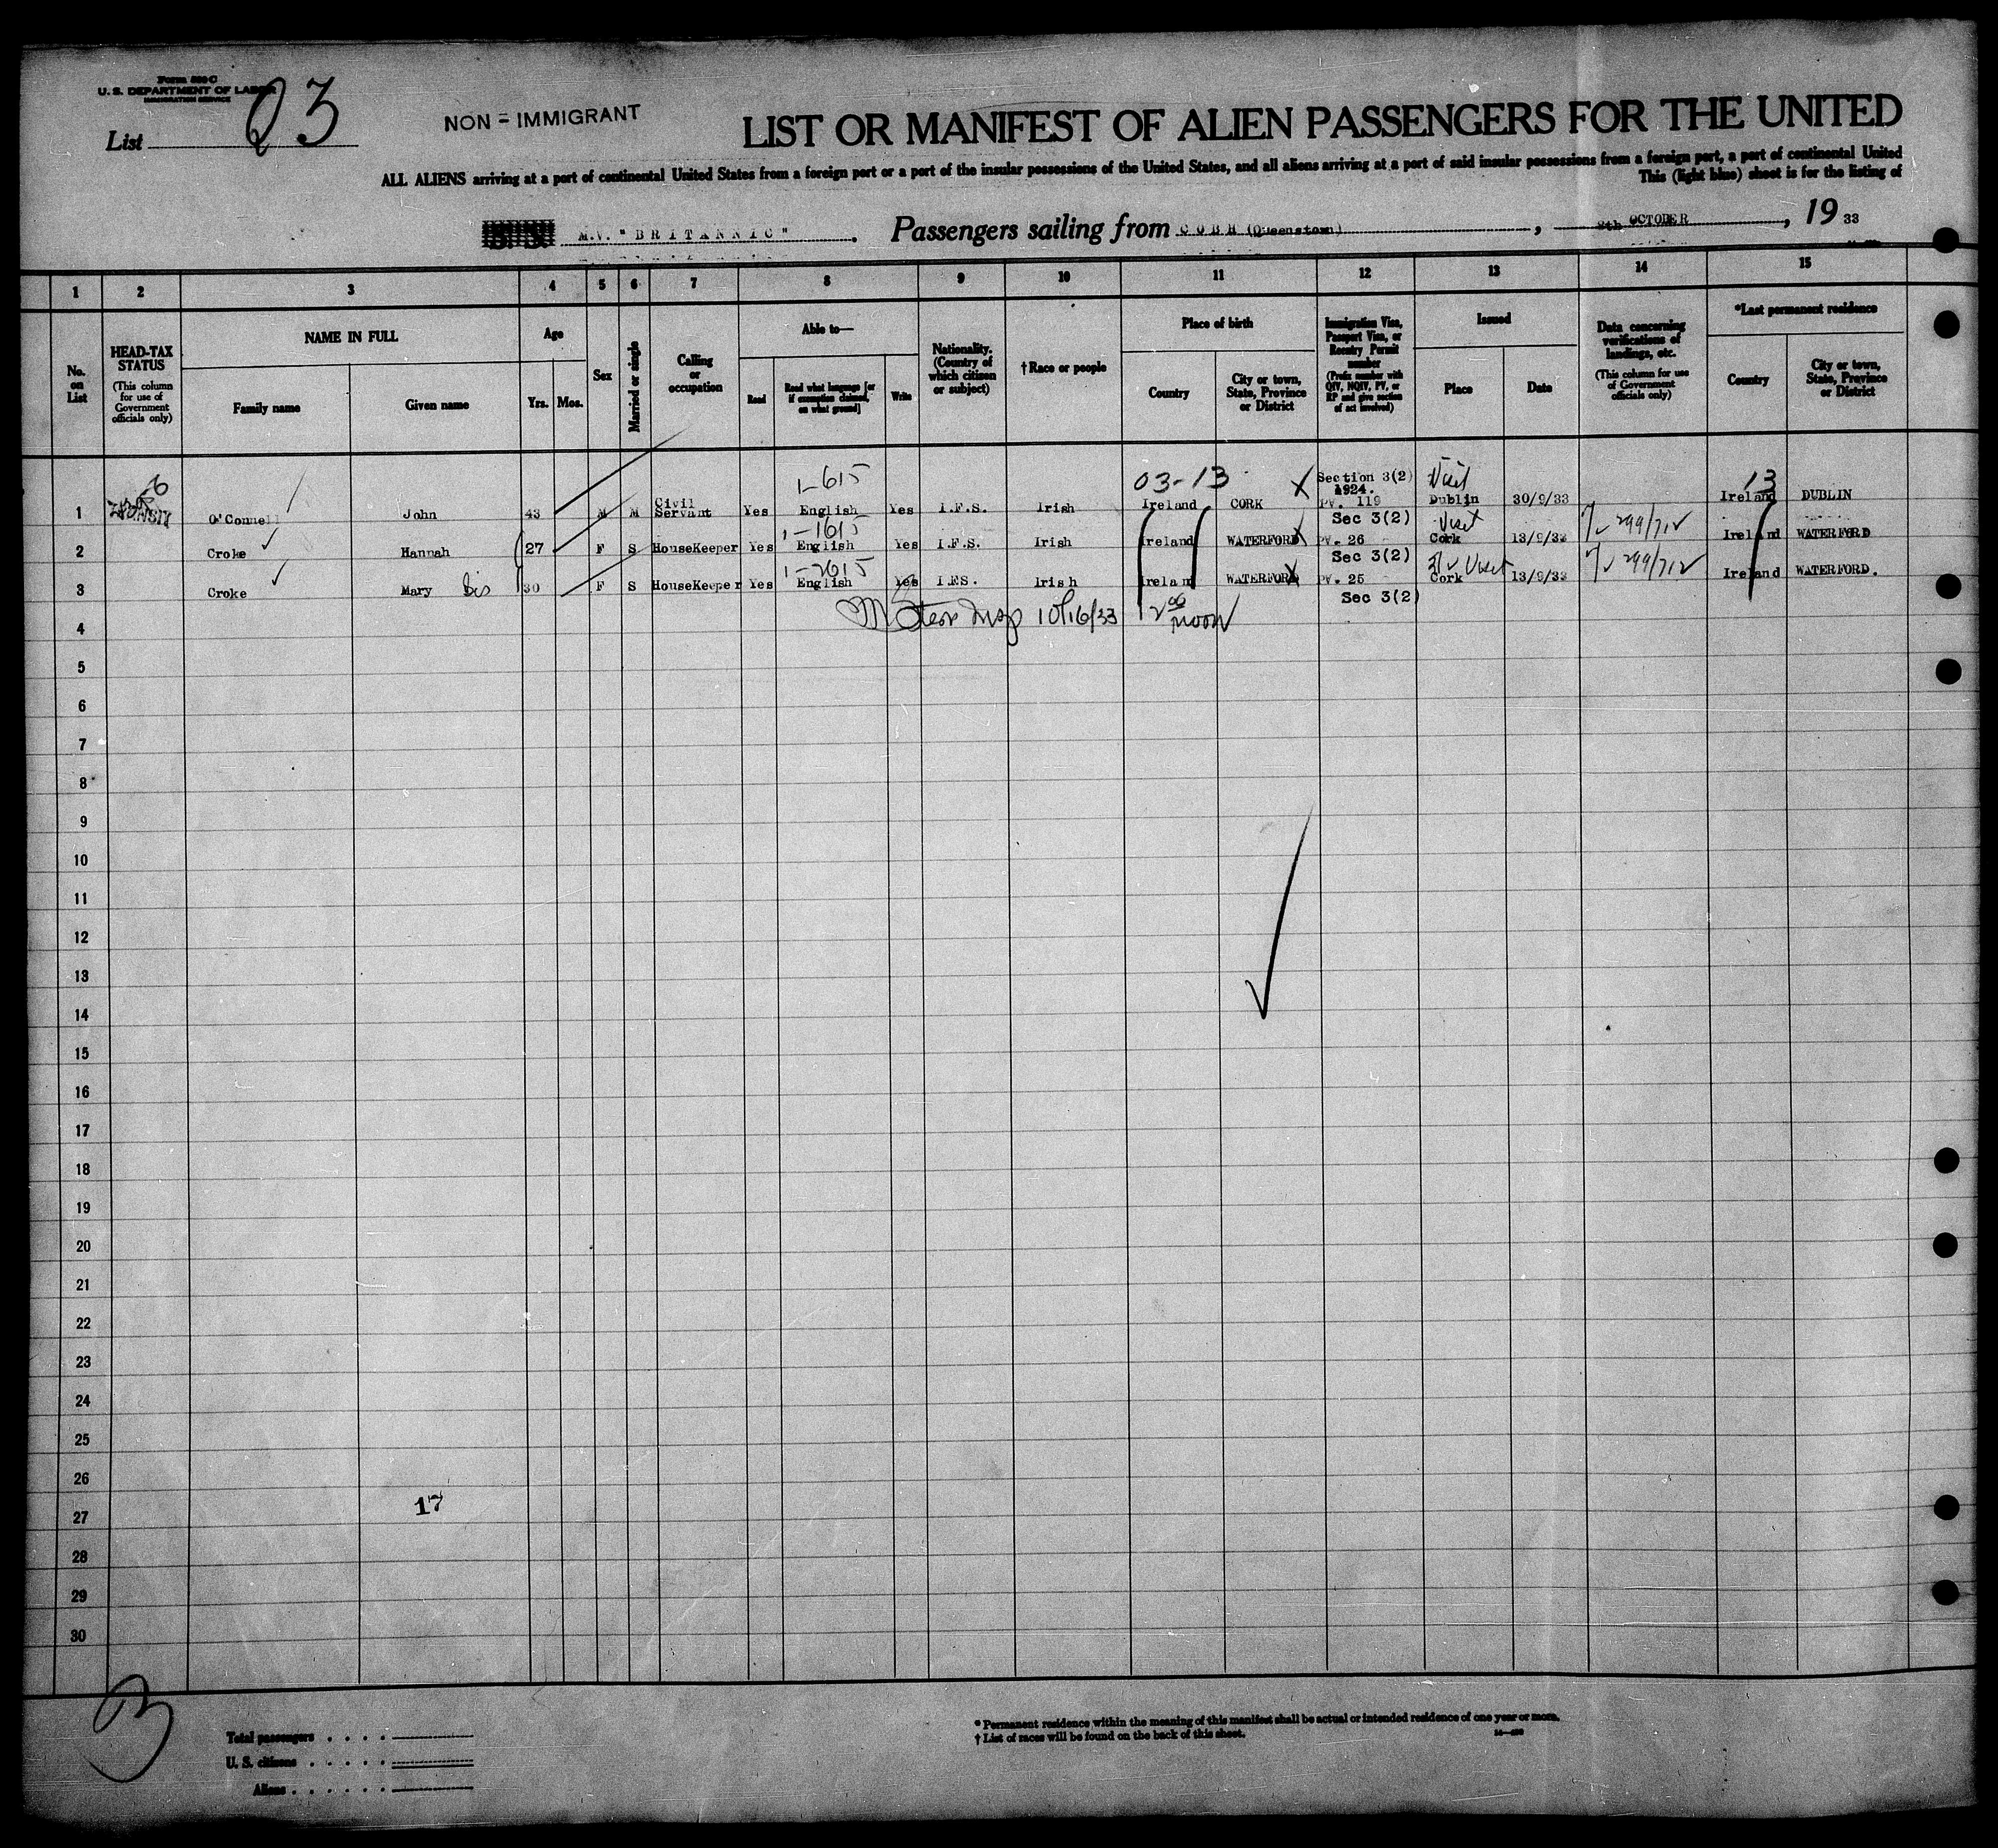 Form 500 C
U. S. DEPARTMENT OF LABOR
IMMIGRATION SERVICE
List 23
NON-IMMIGRANT
LIST OR MANIFEST OF ALIEN PASSENGERS FOR THE UNITED
ALL ALIENS arriving at a port of continental United States from a foreign port or a port of the insular possessions of the United States, and all aliens arriving at a port of said insular possessions from a foreign port, a port of continental United
This (light blue) sheet is for the listing of
M.V. "BRITANNIC". Passengers sailing from COBH (Queenstown), 8th OCTOBER, 19 33
1 2 3 4 5 6 7 8 9 10 11 12 13 14 15
No. on List
HEAD-TAX STATUS (This column for use of Government officials only)
NAME IN FULL
Family name
Given name
Age
Yrs. Mos.
Sex
Married or single
Calling or occupation
Able to—
Read
Read what language [or if exemption claimed, on what ground]
Write
Nationality. (Country of which citizen or subject)
† Race or people
Place of birth
Country
City or town, State, Province or District
Immigration Visa, Passport Visa, or Reentry Permit number (Prefix number with QIV, NQIV, PV, or RP and give section of act involved)
Issued
Place
Date
Data concerning verifications of landings, etc. (This column for use of Government officials only)
*Last permanent residence
Country
City or town, State, Province or District
6 1-615 03-13 Section 3(2) 1924. Visit 13
1 TRANSIT O'Connell John 43 M M Civil Servant Yes English Yes I.F.S. Irish Ireland CORK X PV. 119 Dublin 30/9/33 Ireland DUBLIN
1-1615 Sec 3(2) Visit
2 Croke Hannah 27 F S HouseKeeper Yes English Yes I.F.S. Irish Ireland WATERFORD X PV. 26 Cork 13/9/33 299/712 Ireland WATERFORD
1-2615 Sec 3(2) Visit
3 Croke Mary Sis 30 F S HouseKeeper Yes English Yes I.FS. Irish Ireland WATERFORD X PV. 25 Cork 13/9/33 299/712 Ireland WATERFORD.
Sec 3(2)
4 Insp 10/16/33 12 00 noon
5
6
7
8
9
10
11
12
13
14
15
16
17
18
19
20
21
22
23
24
25
26
27 17
28
29
30
3
Total passengers . . . .
U. S. citizens . . . . .
Aliens . . . . . .
* Permanent residence within the meaning of this manifest shall be actual or intended residence of one year or more.
† List of races will be found on the back of this sheet.